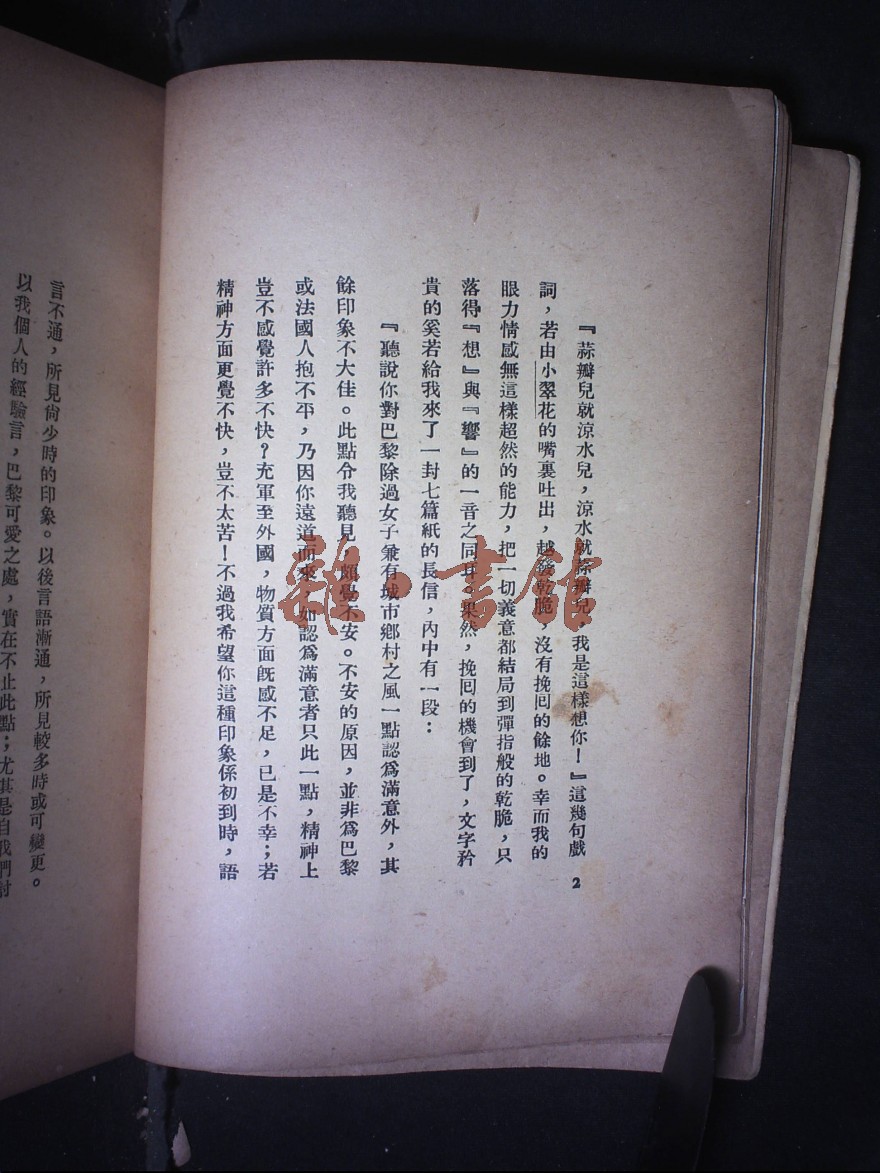 『蒜瓣兒就涼水兒，涼水就蒜瓣兒，我是這樣想你！』這幾句戲
詞，若由小翠花的嘴裏吐出，越發乾脆，沒有挽囘的餘地。幸而我的
眼力情感無這樣超然的能力，把一切義意都結局到彈指般的乾脆，只
落得『想』與『響』的一音之同耳。果然，挽囘的機會到了，文字矜
貴的奚若給我來了一封七篇紙的長信，內中有一段：
『聽說你對巴黎除過女子兼有城市鄉村之風一點認爲滿意外，其
餘印象不大佳。此點令我聽見，頗覺不安。不安的原因，並非爲巴黎
或法國人抱不平，乃因你遠道而來，如認爲滿意者只此一點，精神上
豈不感覺許多不快？充軍至外國，物質方面旣感不足，已是不幸；若
精神方面更覺不快，豈不太苦！不過我希望你這種印象係初到時，語
2
言不通，所見尙少時的印象。以後言語漸通，所見較多時或可變更。
以我個人的經驗言，巴黎可愛之處，實在不止此點；尤其是自我們
雜·書館